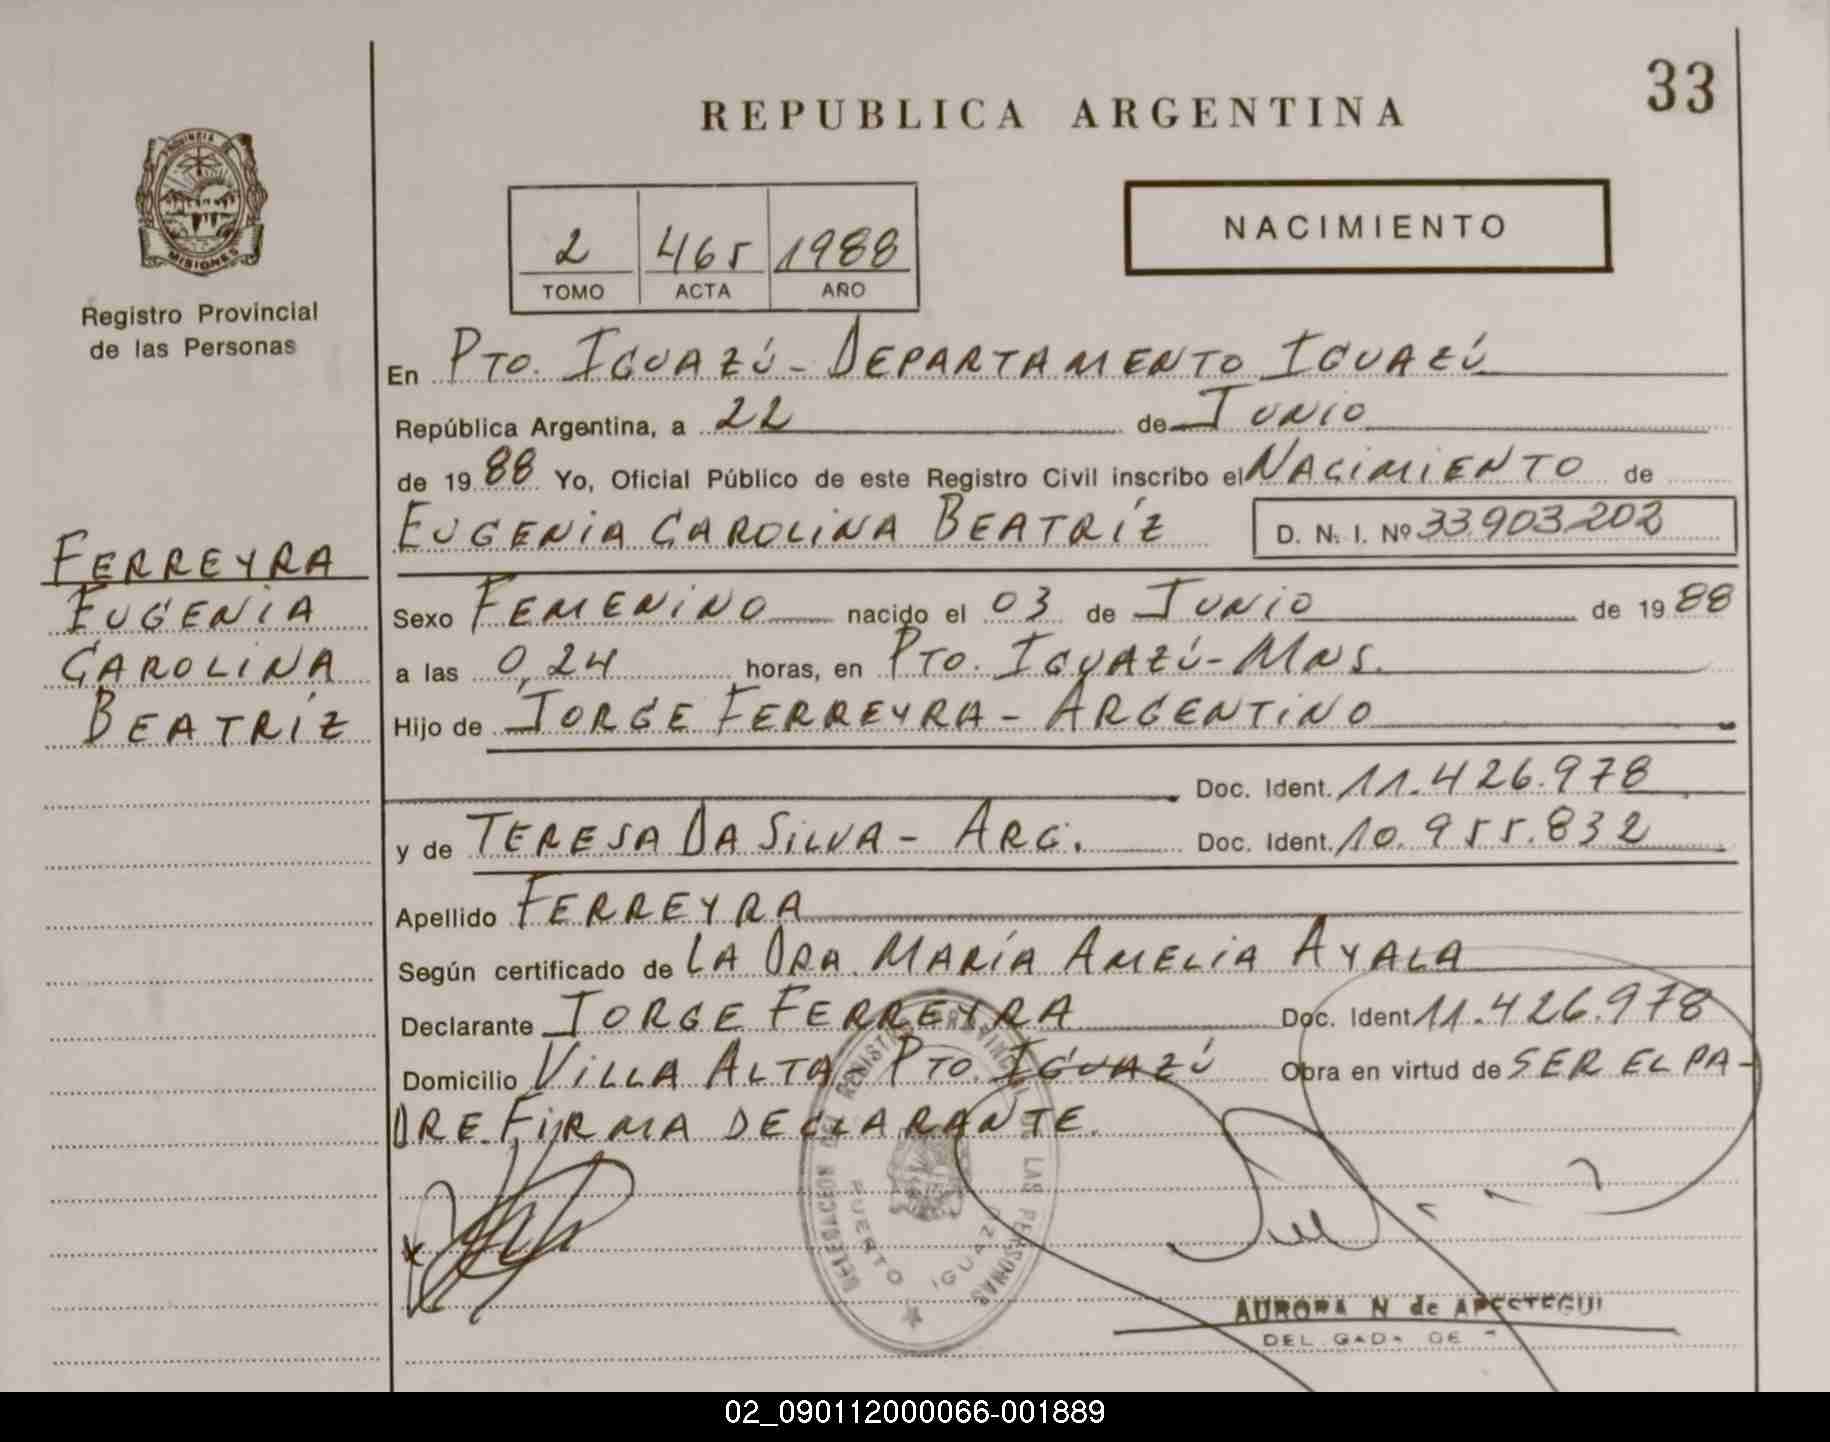 33
REPUBLICA ARGENTINA
PROVINCIA DE
MISIONES
Registro Provincial
de las Personas
2 465 1988
TOMO ACTA AÑO
NACIMIENTO
En PTO. IGUAZÚ - DEPARTAMENTO IGUAZÚ
República Argentina, a 22 de JUNIO
de 19 88 Yo, Oficial Público de este Registro Civil inscribo el NACIMIENTO de
EUGENIA CAROLINA BEATRÍZ D. N. I. Nº 33.903.202
FERREYRA
EUGENIA
CAROLINA
BEATRÍZ
Sexo FEMENINO nacido el 03 de JUNIO de 19 88
a las 0,24 horas, en PTO. IGUAZÚ - MNS.
Hijo de JORGE FERREYRA - ARGENTINO
Doc. Ident. 11.426.978
y de TERESA DA SILVA - ARG. Doc. Ident. 10.955.832
Apellido FERREYRA
Según certificado de LA DRA. MARÍA AMELIA AYALA
Declarante JORGE FERREYRA Doc. Ident 11.426.978
Domicilio VILLA ALTA PTO. IGUAZÚ Obra en virtud de SER EL PA-
DRE. FIRMA DECLARANTE.
DELEGACION DEL REGISTRO PROVINCIAL DE LAS PERSONAS
PUERTO IGUAZU
AURORA N de APESTEGUI
02_090112000066-001889